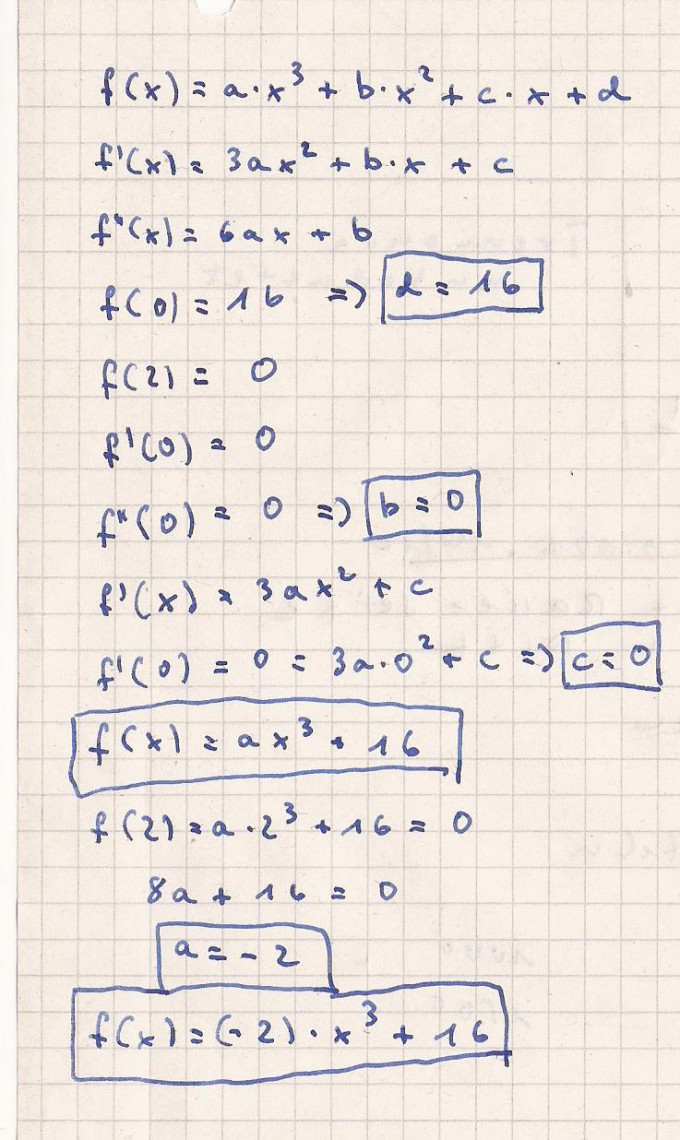 f(x) = a·x³ + b·x² + c·x + d
f'(x) = 3ax² + b·x + c
f"(x) = 6ax + b
f(0) = 16 => d = 16
f(2) = 0
f'(0) = 0
f"(0) = 0 => b = 0
f'(x) = 3ax² + c
f'(0) = 0 = 3a·0² + c => c = 0
f(x) = ax³ + 16
f(2) = a·2³ + 16 = 0
8a + 16 = 0
a = -2
f(x) = (-2)·x³ + 16